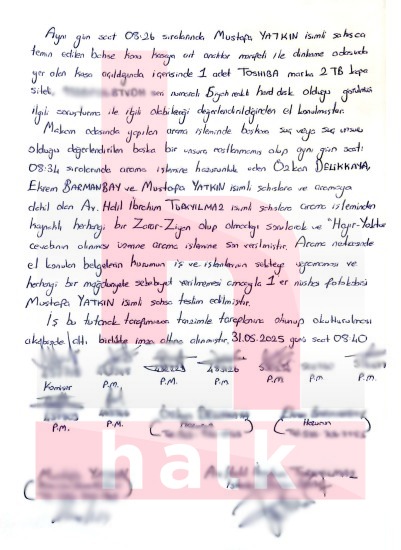 Aynı gün saat 08:26 sıralarında Mustafa YATKIN isimli şahısca
temin edilen bahse konu kasaya ait anahtar marifeti ile dinlenme odasında
yer alan kasa açıldığında içerisinde 1 adet TOSHIBA marka 2 TB kapa
siteli, seri numaralı siyah renkli hard disk olduğu görülmüş
ilgili soruşturma ile ilgili olabileceği değerlendirildiğinden el konulmuştur.
Makam odasında yapılan arama işleminde başkaca suç veya suç unsuru
olduğu değerlendirilen başka bir unsura rastlanmamış olup aynı gün saat:
08:34 sıralarında arama işlemine hazurunluk eden Özkan DELİKKAYA,
Ekrem BARMANBAY ve Mustafa YATKIN isimli şahıslara ve aramaya
dahil olan Av. Halil İbrahim isimli şahıslara arama işleminden
kaynaklı herhangi bir Zarar-Ziyan olup olmadığı sorularak ve "Hayır-Yoktur"
cevabının alınması üzerine arama işlemine son verilmiştir. Arama neticesinde
el konulan belgelerin kurumun iş ve işlemlerinin sekteye uğramaması ve
herhangi bir mağduriyete sebebiyet verilmemesi amacıyla 1'er nüsha fotokobisi
Mustafa YATKIN isimli şahsa teslim edilmiştir.
İş bu tutanak tarafımızdan tanzimle taraflarına okunup okutturulması
akabinde altı birlikte imza altına alınmıştır. 31.05.2025 günü saat 08:40
Komiser P.M. P.M. P.M. P.M P.M P.M.
P.M. P.M. Hazurun Hazurun
halk